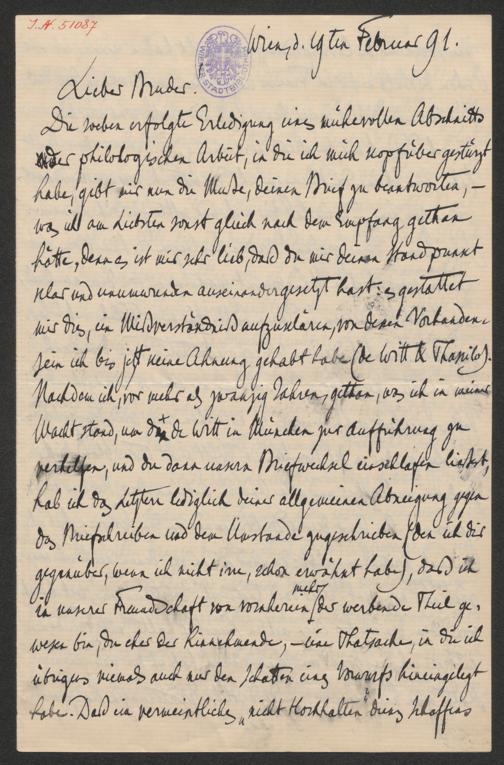 I. N. 51087
WIENER STADTBIBLIOTHEK
Wien, d. 19ten Februar 91.
Lieber Bruder.
Die soeben erfolgte Erledigung eines mühevollen Abschnitts
der philologischen Arbeit, in die ich mich kopfüber gestürzt
habe, gibt mir nun die Muße, deinen Brief zu beantworten, –
was ich am liebsten sonst gleich nach dem Empfang gethan
hätte, denn es ist mir sehr lieb, daß du mir deinen Standpunkt
klar und unumwunden auseinandergesetzt hast: es gestattet
mir dies, ein Mißverständniß aufzuklären, von dessen Vorhanden-
sein ich bis jetzt keine Ahnung gehabt habe (de Witt & Thassilo).
Nachdem ich, vor mehr als zwanzig Jahren, gethan, was ich in meiner
Macht stand, um de Witt in München zur Aufführung zu
verhelfen, und du dann unsern Briefwechsel einschlafen ließest,
hab ich das Letztere lediglich deiner allgemeinen Abneigung gegen
das Briefschreiben und dem Umstande zugeschrieben (den ich dir
gegenüber, wenn ich nicht irre, schon erwähnt habe), daß ich
in unserer Freundschaft von vornherein mehr der werbende Theil ge-
wesen bin, du eher der hinnehmende, – eine Thatsache, in die ich
übrigens niemals auch nur den Schatten eines Vorwurfs hineingelegt
habe. Daß ein vermeintliches „nicht Hochhalten" deines Schaffens